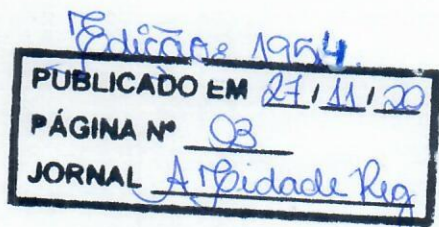 Edição: 1954.
PUBLICADO EM 27/11/20
PÁGINA Nº 03
JORNAL A Cidade Reg